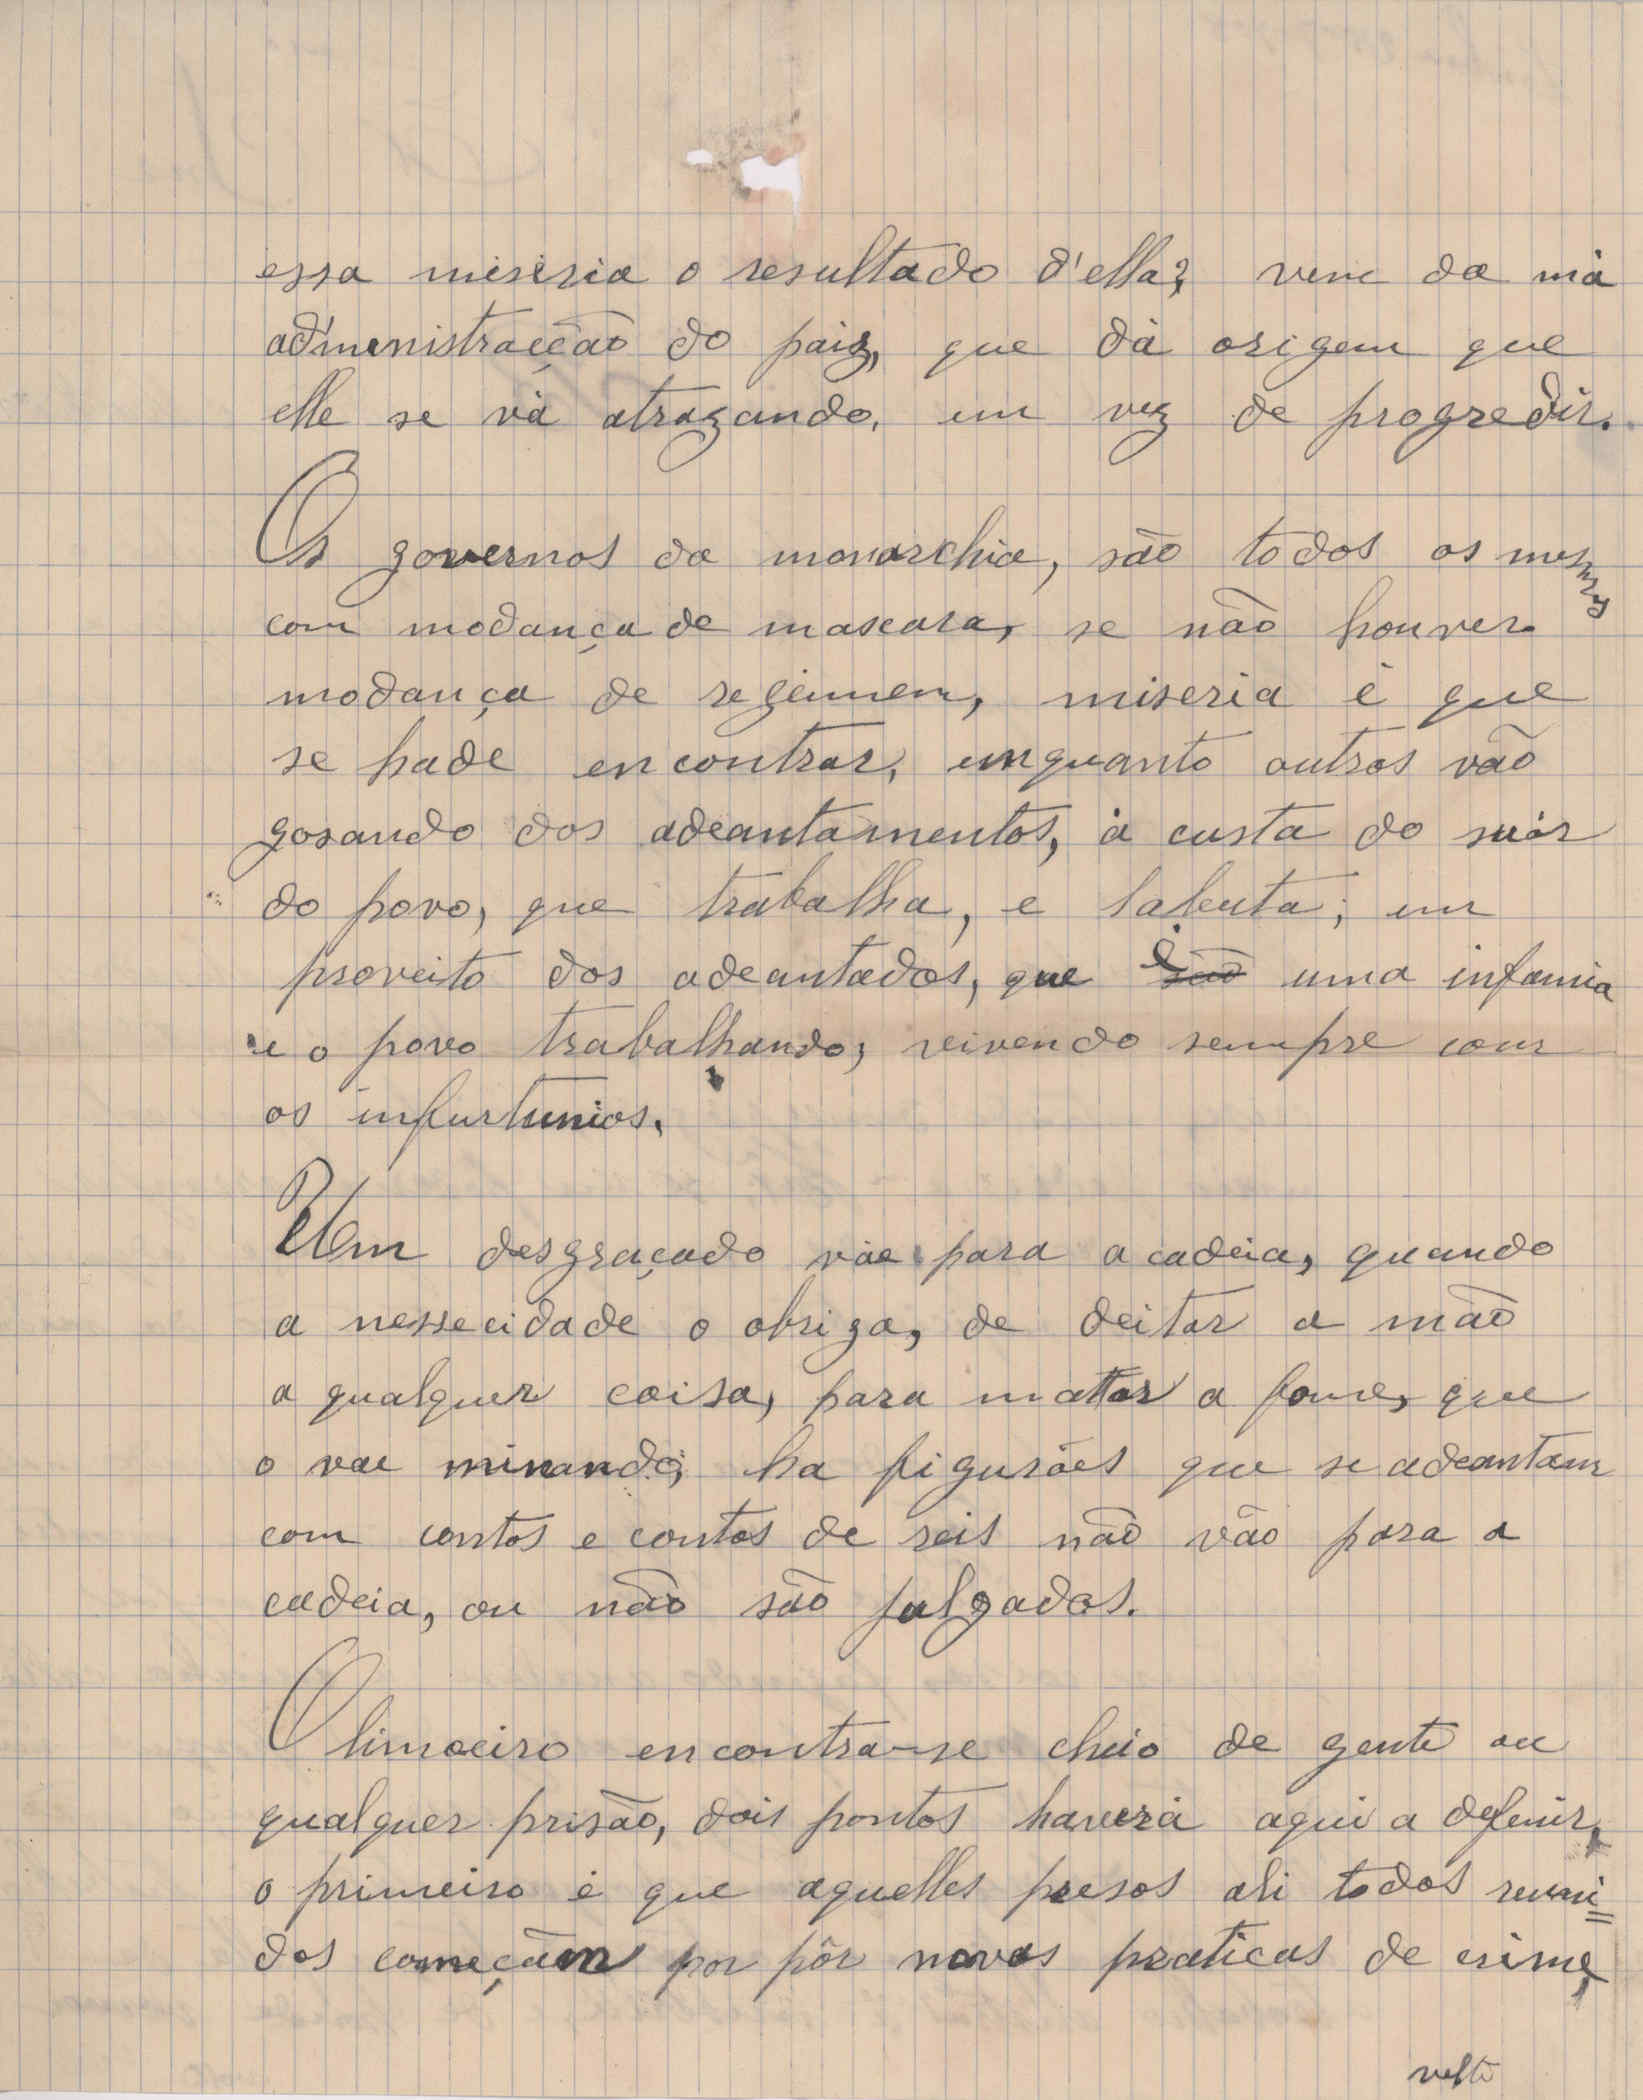 essa miseria o resultado d'ella? vem da má
administracção do paiz, que dá origem que
elle se vá atrazando, em vez de progredir.
Os governos da monarchia, são todos os mesmos
com modança de mascara, se não houver
modança de regimen, miseria é que
se hade encontrar, enquanto outros vão
gosando dos adeantamentos, á custa do suór
do povo, que trabalha, e labuta; em
proveito dos adeantados, que é são uma infamia
e o povo trabalhando, vivendo sempre com
os infurtunios.
Um desgraçado váe para a cadeia, quando
a nessecidade o obriga, de deitar a mão
a qualquer coisa, para matar a fome, que
o vae minando; ha figurões que se adeantam
com contos e contos de reis não vão para a
cadeia, ou não são julgados.
O limoeiro encontra-se cheio de gente ou
qualquer prisão, dois pontos haverá aqui a definir,
o primeiro é que aquelles presos ali todos reuni=
dos começãm por pôr novas praticas de crime,
volte